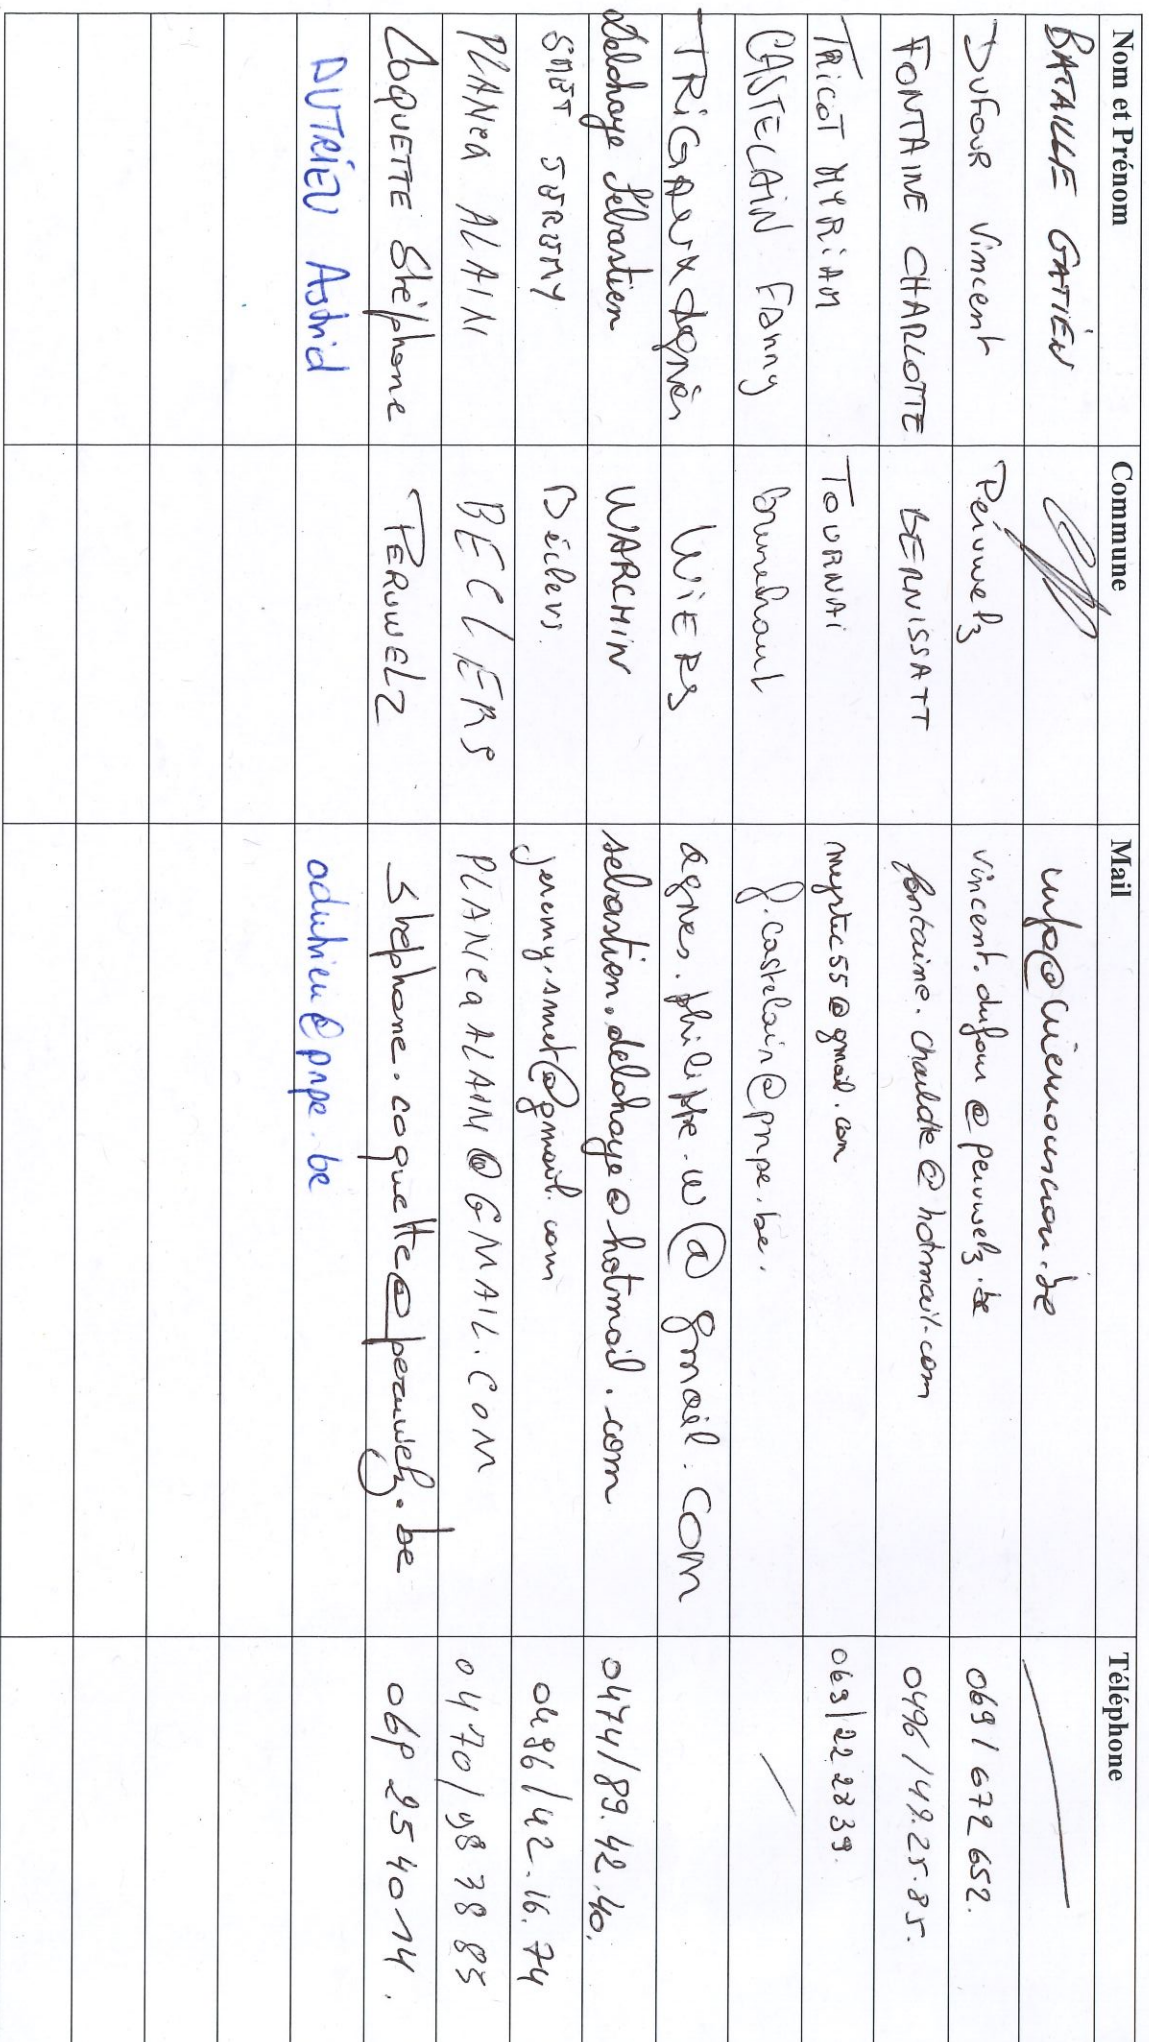 Nom et Prénom Commune Mail Téléphone
BATAILLE GATIEN
Dufour Vincent Péruwelz vincent.dufour@peruwelz.be 069/672652.
FONTAINE CHARLOTTE BERNISSART 0496/49.25.85.
TRICOT MYRIAM TOURNAI mystic55@gmail.com 069/22 2839.
CASTELAIN Fanny Brunehaut f.castelain@pnpe.be.
TRIGAUX Agnès WIERS agnes.philippe.w@gmail.com
Delehaye Sébastien WARCHIN sebastien.delehaye@hotmail.com 0474/89.42.40.
SMET JEREMY Béclers. jeremy.smet@gmail.com 0496/42.16.74
PLANCQ ALAIN BECLERS PLANCQALAIN@GMAIL.COM 0470/98 78 85
COQUETTE Stéphane PERUWELZ stephane.coquette@peruwelz.be 069 25 40 14.
DUTRIEU Astrid adutrieu@pnpe.be